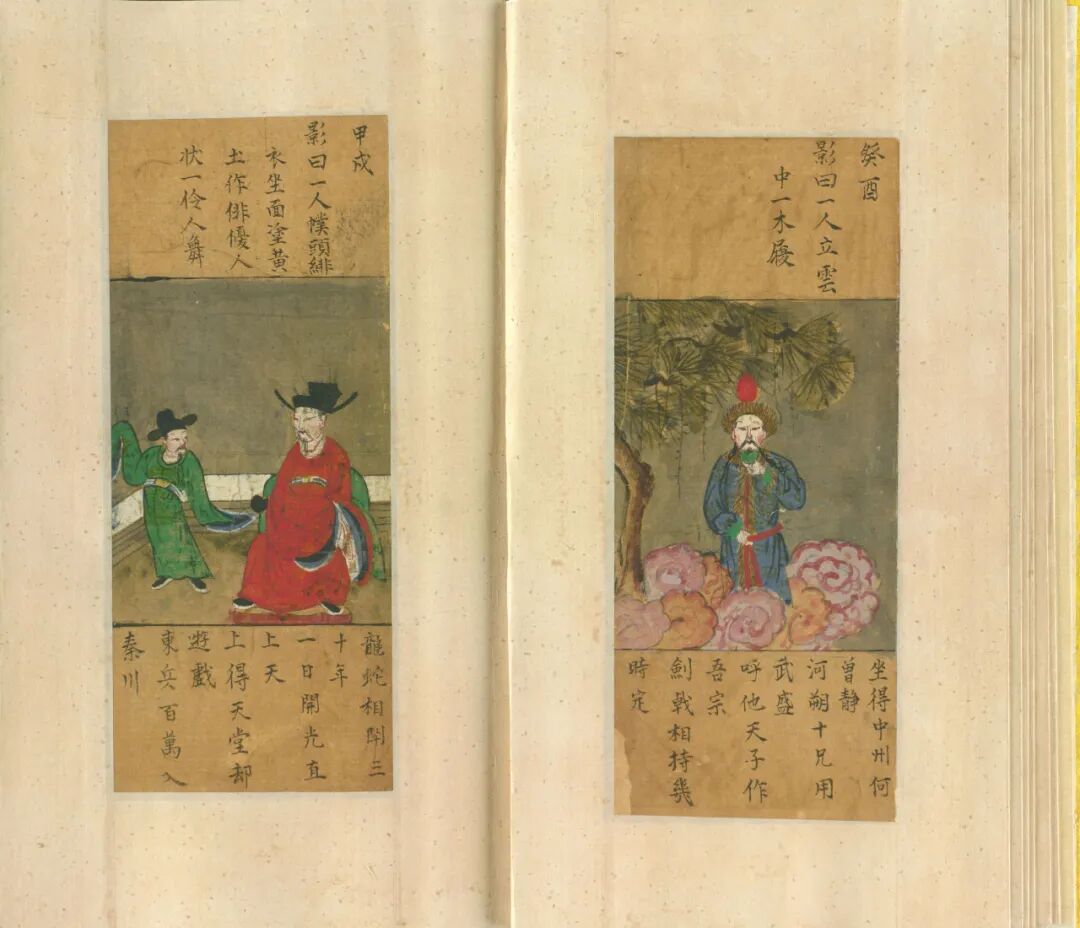 癸酉
影曰一人立雲
中一木屐
坐得中州何
曾靜
河朔十兄用
武盛
呼他天子作
吾宗
劍戟相持幾
時定
甲戌
影曰一人幞頭緋
衣坐面塗黃
土作俳優人
狀一伶人舞
龍蛇相鬬三
十年
一日開光直
上天
上得天堂却
遊戲
東兵百萬入
秦川